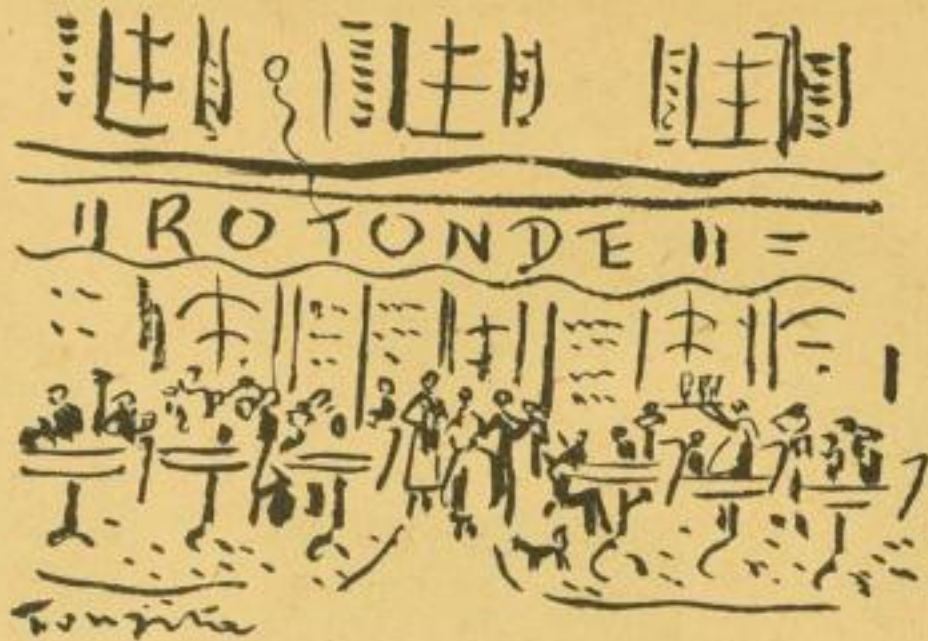 "ROTONDE" =
Foujita